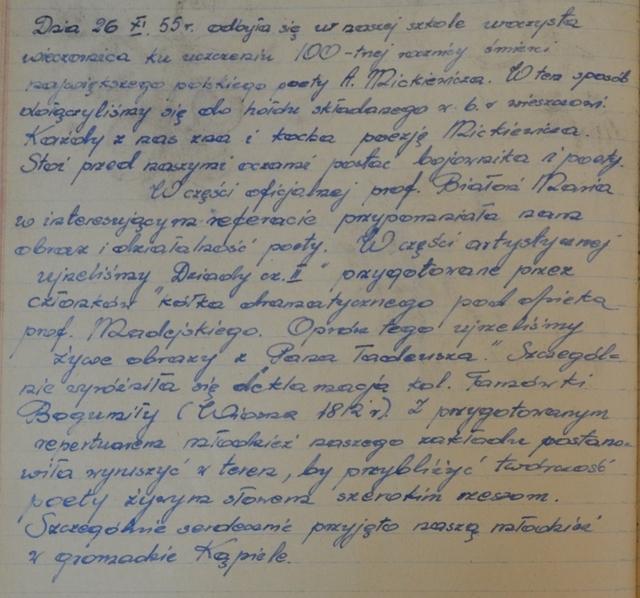 Dnia 26 XI. 55 r. odbyła się w naszej szkole uroczysta
wieczornica ku uczczeniu 100-tnej rocznicy śmierci
największego polskiego poety A. Mickiewicza. W ten sposób
dołączyliśmy się do hołdu składanego w b. r. wieszczowi.
Każdy z nas zna i kocha poezję Mickiewicza.
Stoi przed naszymi oczami postać bojownika i poety.
W części oficjalnej prof. Białoń Maria
w interesującym referacie przypomniała nam
obraz i działalność poety. W części artystycznej
ujrzeliśmy Dziady cz. II" przygotowane przez
członków "kółka dramatycznego pod opieką
prof. Madejskiego. Oprócz tego ujrzeliśmy
żywe obrazy z "Pana Tadeusza." Szczegól=
nie wyróżniła się deklamacja kol. Famówki
Bogumiły (Wiosna 1812 r). Z przygotowanym
repertuarem młodzież naszego zakładu postano=
wiła wyruszyć w teren, by przybliżyć twórczość
poety żywym słowem szerokim rzeszom.
Szczególnie serdecznie przyjęto naszą młodzież
w gromadzie Kąpiele.